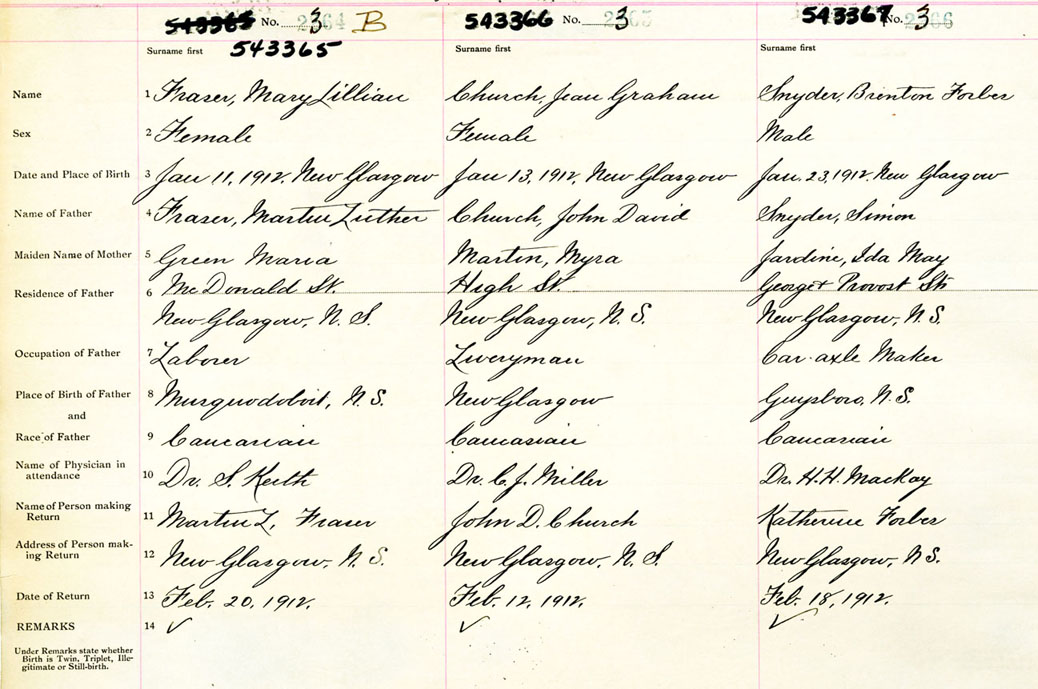 543365 No. 3 2364 B 543366 No. 3 2365 543367 No. 3 2366
Surname first 543365 Surname first Surname first
Name 1 Fraser, Mary Lillian Church, Jean Graham Snyder, Brenton Forbes
Sex 2 Female Female Male
Date and Place of Birth 3 Jan 11, 1912, New Glasgow Jan 13, 1912, New Glasgow Jan. 23, 1912. New Glasgow
Name of Father 4 Fraser, Martin Luther Church, John David Snyder, Simon
Maiden Name of Mother 5 Green Maria Martin, Myra Jardine, Ida May
Residence of Father 6 McDonald St. High St. George & Provost Sts
New Glasgow, N. S. New Glasgow, N. S. New Glasgow, N. S.
Occupation of Father 7 Laborer Liveryman Car-axle Maker
Place of Birth of Father 8 Musquodoboit, N. S. New Glasgow Guysboro, N. S.
and
Race of Father 9 Caucasian Caucasian Caucasian
Name of Physician in attendance 10 Dr. S. Keith Dr. C. J. Miller Dr. H. H. MacKay
Name of Person making Return 11 Martin L. Fraser John D. Church Katherine Forbes
Address of Person mak-
ing Return 12 New Glasgow, N. S. New Glasgow, N. S. New Glasgow, N S.
Date of Return 13 Feb. 20, 1912. Feb. 12, 1912. Feb. 18, 1912.
REMARKS 14 ✓ ✓ ✓
Under Remarks state whether
Birth is Twin, Triplet, Ille-
gitimate or Still-birth.